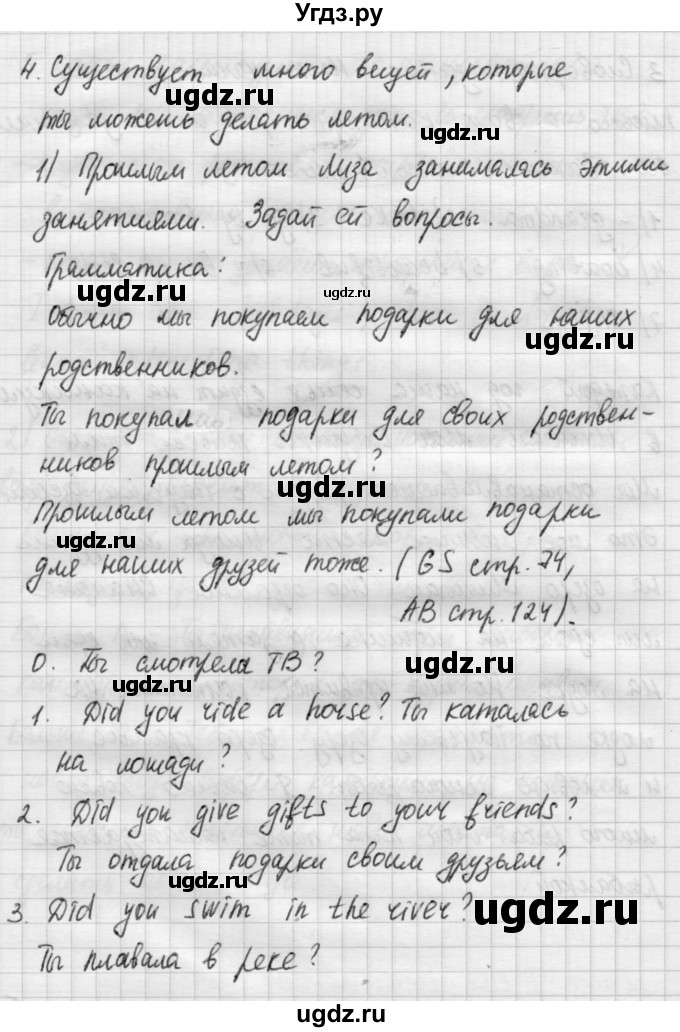 Угдз.ру
4. Существует много вещей, которые
ты можешь делать летом.
1) Прошлым летом Лиза занималась этими
занятиями. Задай ей вопросы.
Грамматика:
Обычно мы покупаем подарки для наших
родственников.
Ты покупал подарки для своих родствен-
ников прошлым летом?
Прошлым летом мы покупали подарки
для наших друзей тоже. (GS стр. 74,
AB стр. 124).
0. Ты смотрела ТВ?
1. Did you ride a horse? Ты каталась
на лошади?
2. Did you give gifts to your friends?
Ты отдала подарки своим друзьям?
3. Did you swim in the river?
Ты плавала в реке?
ugdz.ru
ugdz.ru
ugdz.ru
ugdz.ru
ugdz.ru
ugdz.ru
ugdz.ru
ugdz.ru
ugdz.ru
ugdz.ru
ugdz.ru
ugdz.ru
ugdz.ru